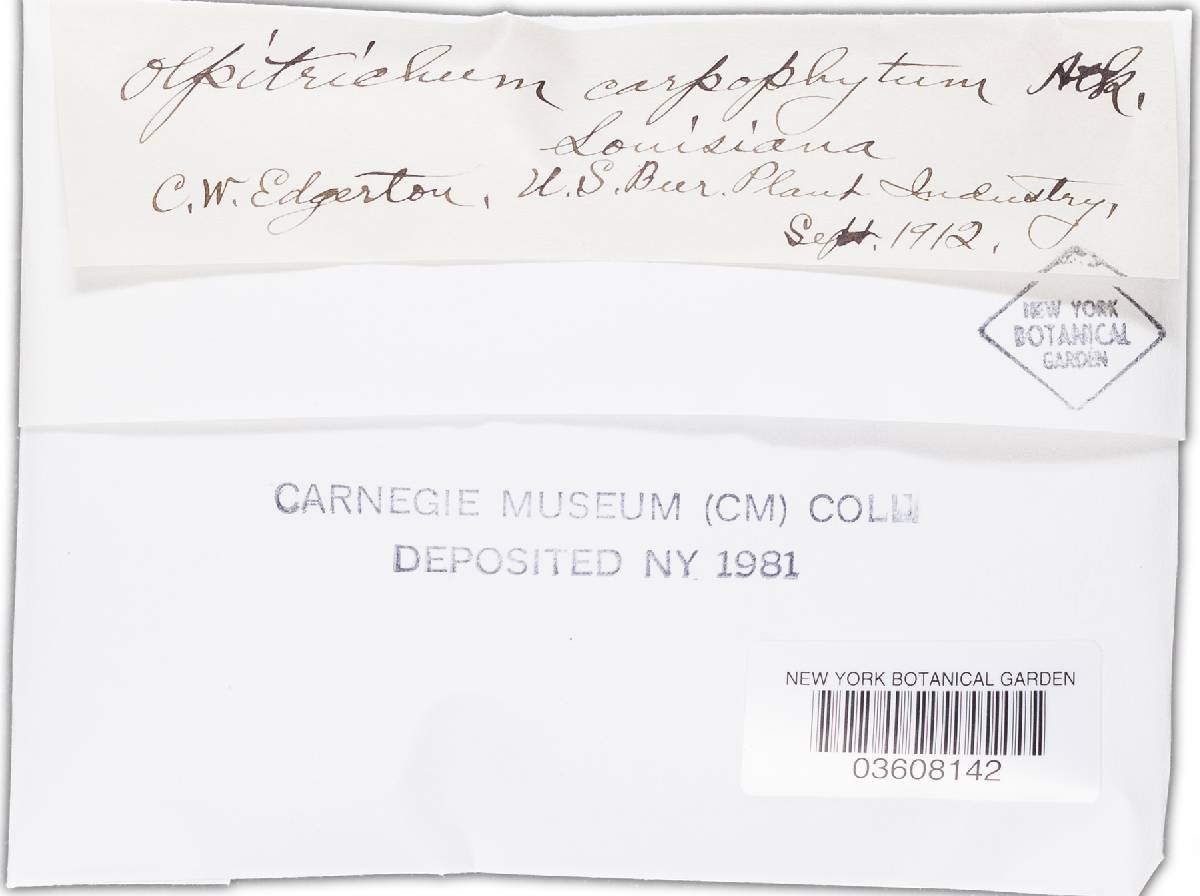 Olpitrichum carpophytum Atk.
Louisiana
C.W. Edgerton, U.S. Bur. Plant Industry,
Sept. 1912.
NEW YORK
BOTANICAL
GARDEN
CARNEGIE MUSEUM (CM) COLL
DEPOSITED NY 1981
NEW YORK BOTANICAL GARDEN
03608142